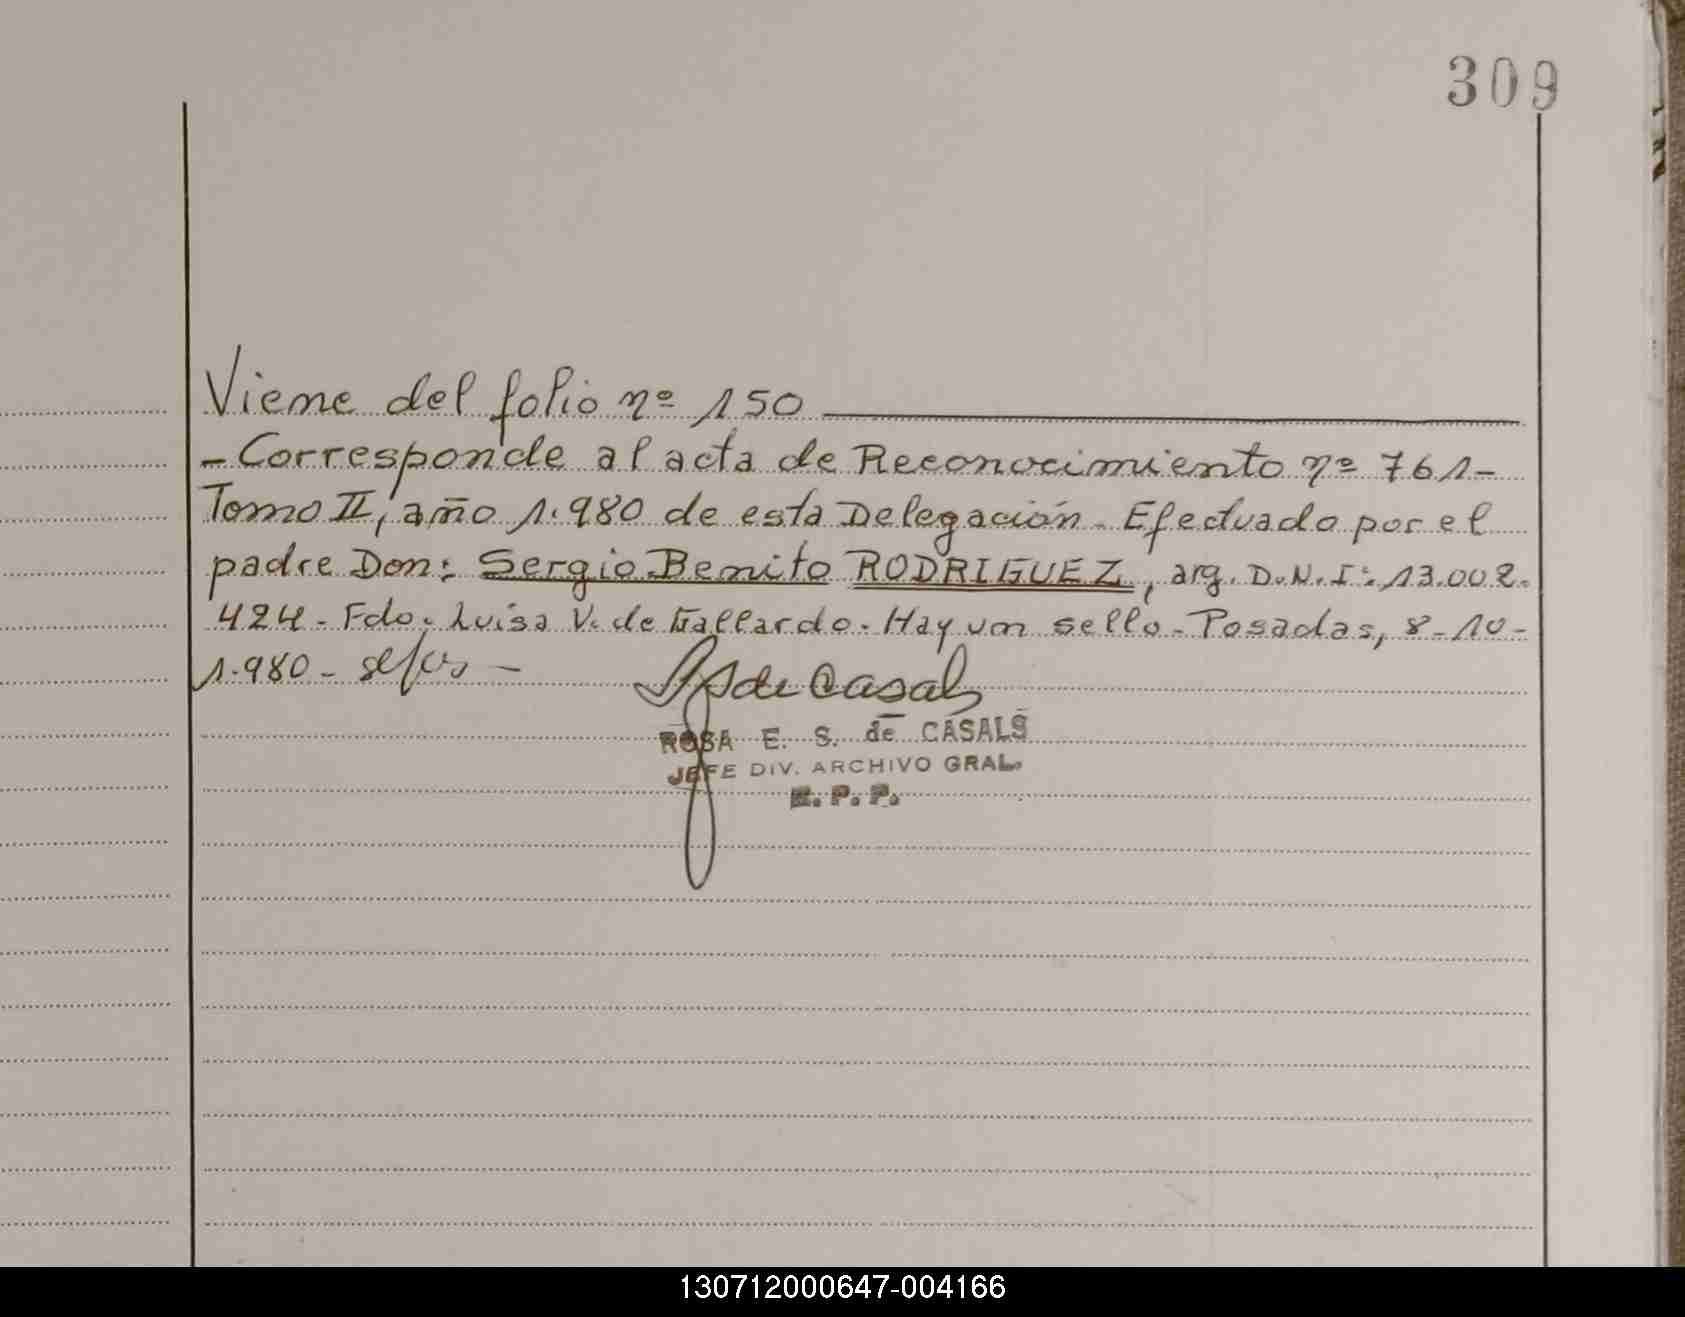 309
Viene del folio nº 150
- Corresponde al acta de Reconocimiento nº 761-
Tomo II, año 1.980 de esta Delegación. Efectuado por el
padre Don: Sergio Benito RODRIGUEZ, arg. D.N.I: 13.002.
424. Fdo: Luisa V. de Gallardo. Hay un sello. Posadas, 8-10-
1.980 -
de Casals
ROSA E. S. de CASALS
JEFE DIV. ARCHIVO GRAL.
R. P. P.
130712000647-004166